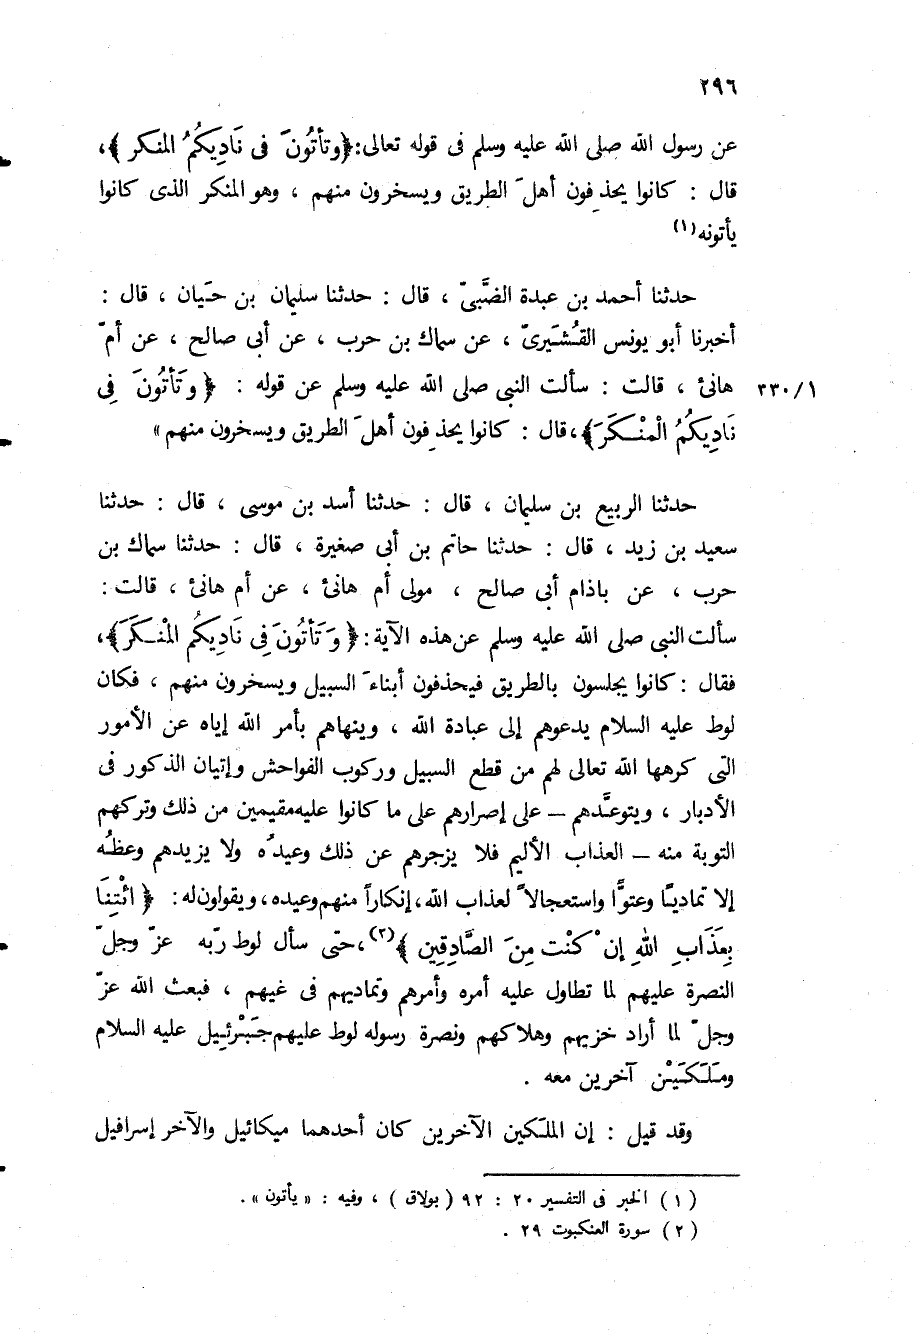 ٢٩٦
عن رسول الله صلى الله عليه وسلم فى قوله تعالى: ﴿وتأتُونَ فى نَادِيكُمُ المنكر﴾،
قال : كانوا يحذِفون أهلَ الطريق ويسخرون منهم ، وهو المنكر الذى كانوا
يأتونه(١)
حدثنا أحمد بن عبدة الضَّبىّ ، قال : حدثنا سليمان بن حَيان ، قال :
أخبرنا أبو يونس القُشَيرىّ ، عن سماك بن حرب ، عن أبى صالح ، عن أمّ
هانئ ، قالت : سألت النبى صلى الله عليه وسلم عن قوله : ﴿وَتَأْتُونَ فِى ٣٣٠/١
نَادِيكُمُ الْمنْكَرَ﴾، قال : كانوا يحذِفون أهلَ الطريق ويسخرون منهم »
حدثنا الربيع بن سليمان ، قال : حدثنا أسد بن موسى ، قال : حدثنا
سعيد بن زيد ، قال : حدثنا حاتم بن أبى صغيرة ، قال : حدثنا سماك بن
حرب ، عن باذام أبى صالح ، مولى أم هانئ ، عن أم هانئ ، قالت :
سألت النبى صلى الله عليه وسلم عن هذه الآية : ﴿وَتَأتُونَ فِى نَادِيكُم الْمنْكَرَ﴾،
فقال : كانوا يجلسون بالطريق فيحذفون أبناءَ السبيل ويسخرون منهم ، فكان
لوط عليه السلام يدعوهم إلى عبادة الله ، وينهاهم بأمر الله إياه عن الأمور
التى كرهها الله تعالى لهم من قطع السبيل وركوب الفواحش وإتيان الذكور فى
الأدبار ، ويتوعَّدهم – على إصرارهم على ما كانوا عليه مقيمين من ذلك وتركهم
التوبة منه – العذاب الأليم فلا يزجرهم عن ذلك وعيدُه ولا يزيدهم وعظُه
إلا تماديًا وعتوًّا واستعجالاً لعذاب الله، إنكاراً منهم وعيده، ويقولون له : ﴿ائْتِنَا
بِعَذَابِ اللهِ إِن كُنْتَ مِنَ الصَّادِقِين﴾(٢)، حتى سأل لوط ربّه عزّ وجلّ
النصرة عليهم لما تطاول عليه أمره وأمرهم وتماديهم فى غيهم ، فبعث الله عزّ
وجلّ لما أراد خزيهم وهلاكهم ونصرة رسوله لوط عليهم جَبْرئِيل عليه السلام
ومَلَكَيْن آخرين معه .
وقد قيل : إن الملَكين الآخرين كان أحدهما ميكائيل والآخر إسرافيل
(١) الخبر فى التفسير ٢٠ : ٩٢ (بولاق) ، وفيه : « يأتون » .
(٢) سورة العنكبوت ٢٩ .